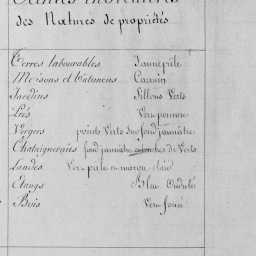 Teintes Indicatives
des Natures de propriétés
Terres labourables Jaunepâle
Maisons et Batimens Carmin
Jardins Sillons Verts
Prés Vers pomme
Vergers points Verts sur fond jaunâtre
Chataigneraies fond jaunâtre de Verts
Landes Vers pâle et maron clair
Etangs Bleu
Bois Vers foncé